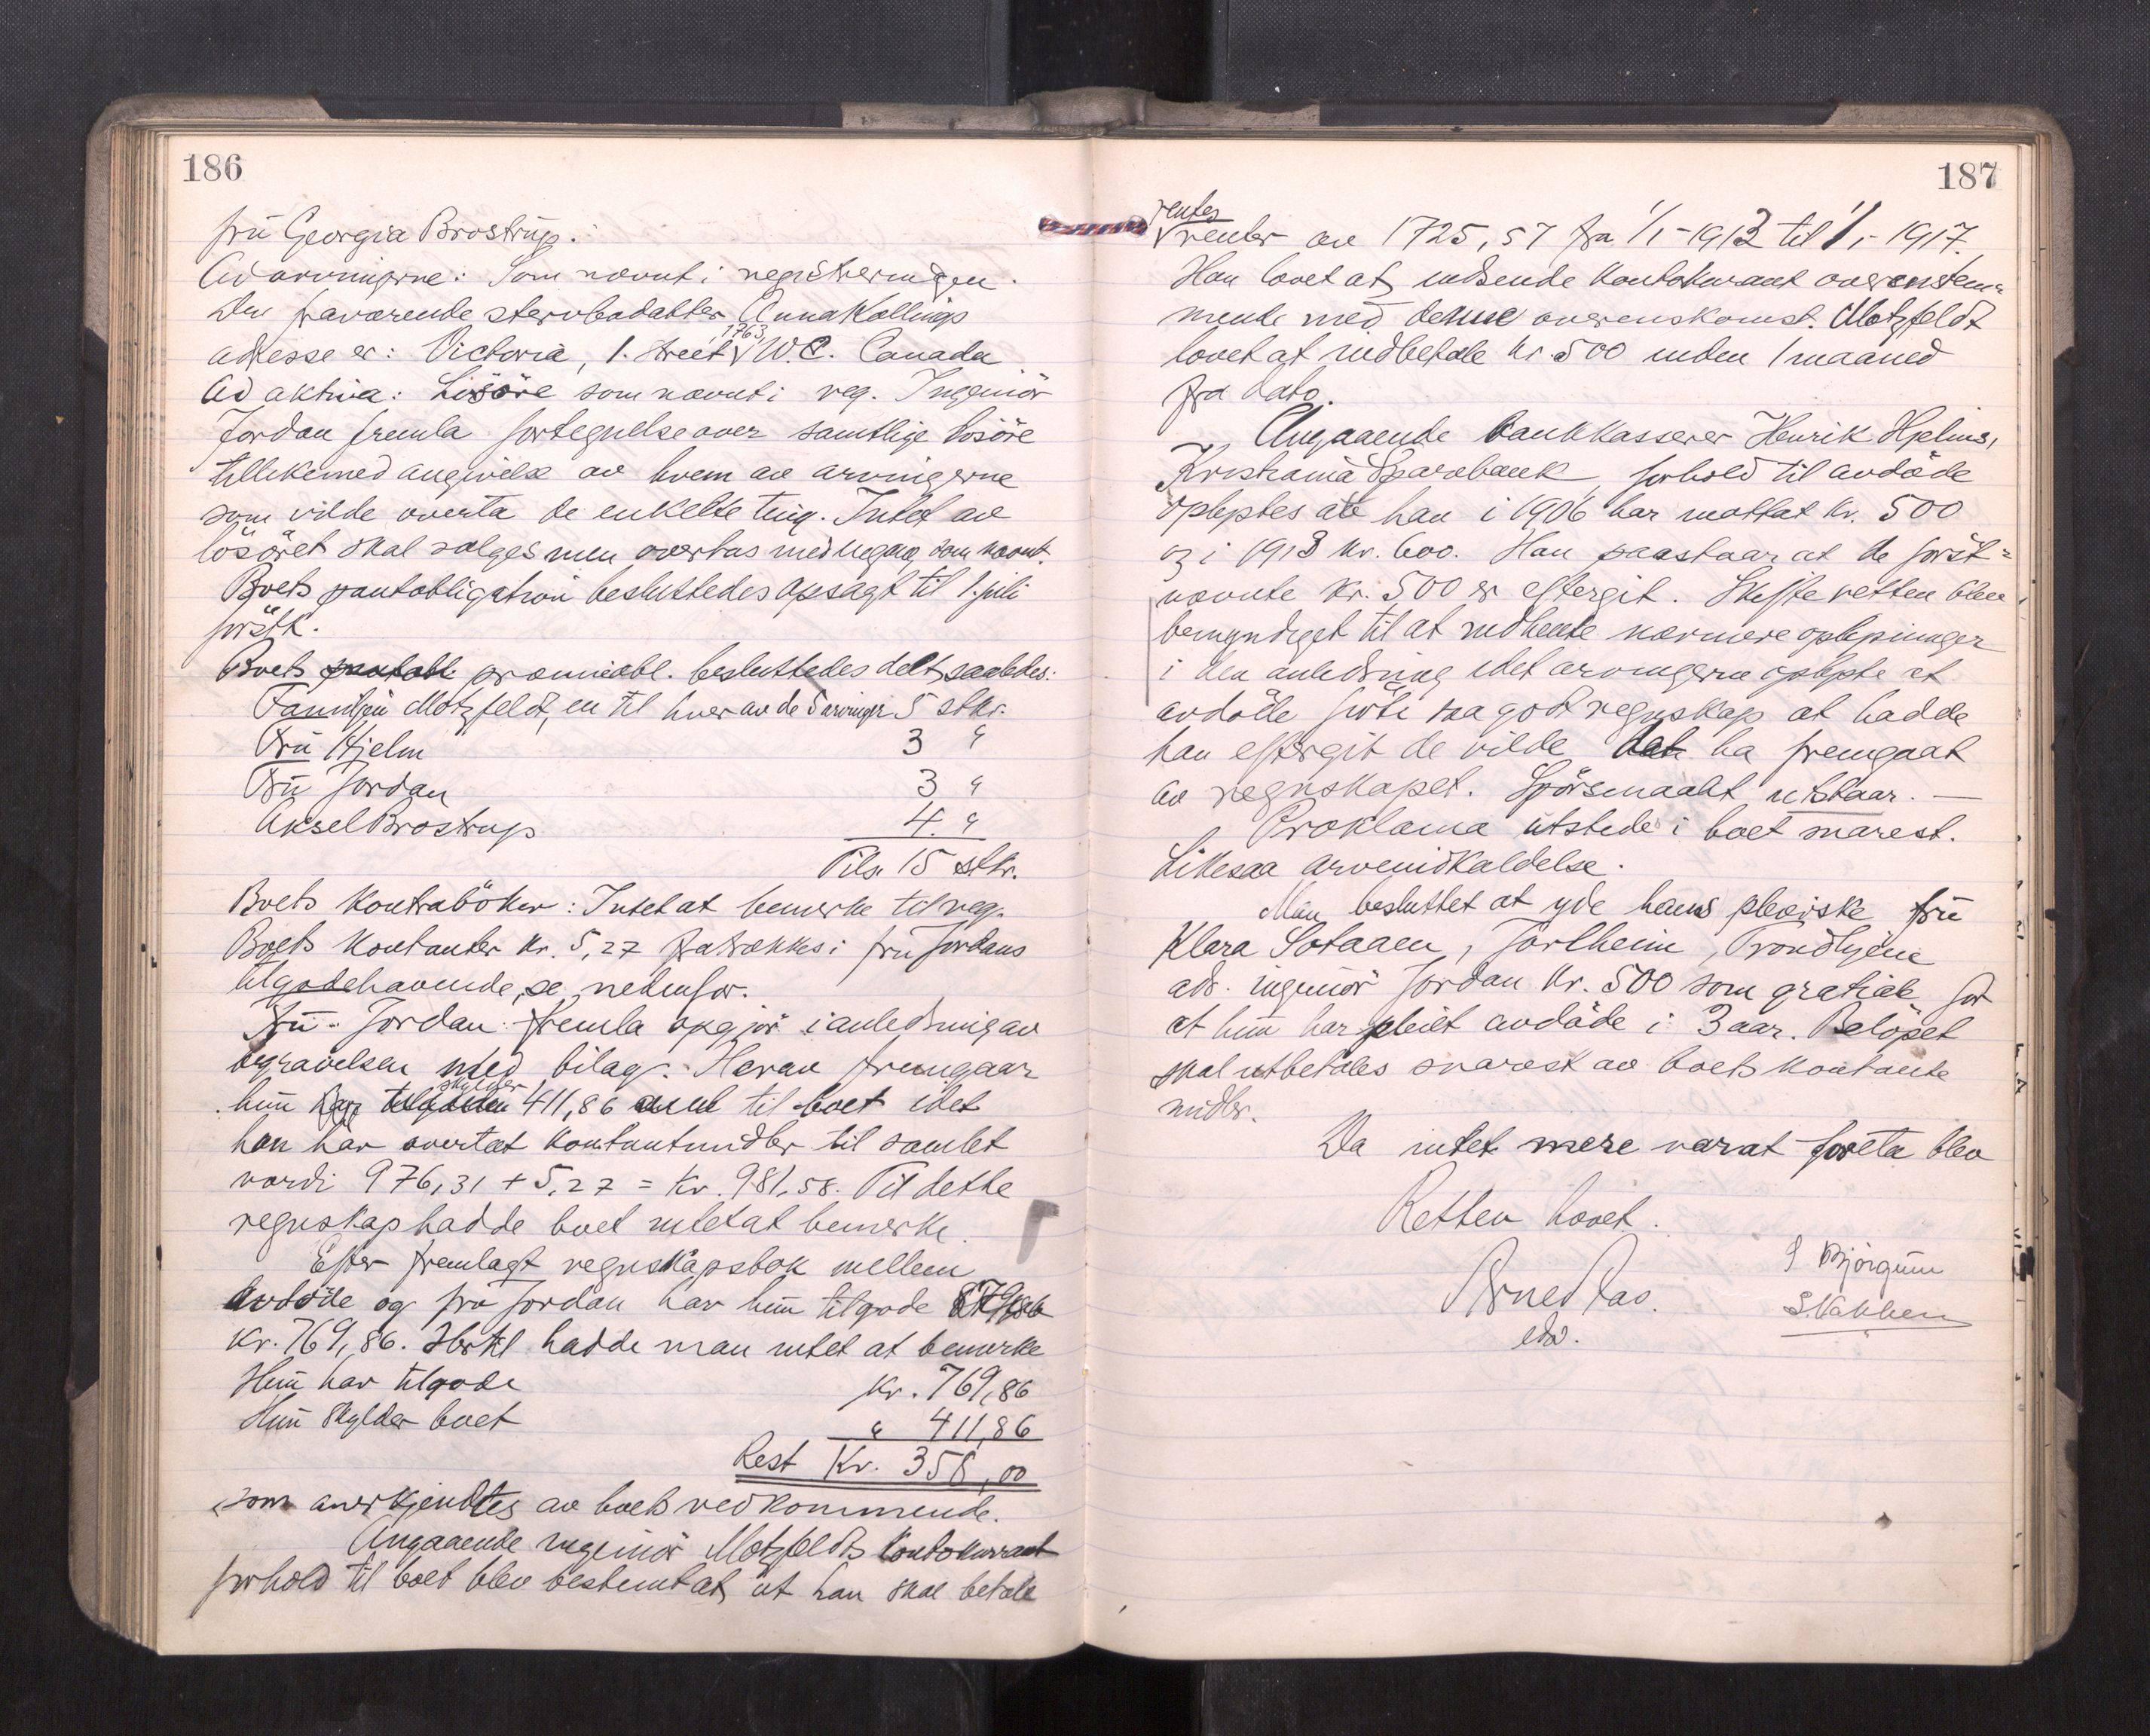 186
fru Georgia Brostrup.
Ad arvingerne: Som nævnt i registreringen.
Den fraværende stervbodatter Anna Kollings
1763
adresse er: Victoria, 1. Street W.C. Canada
Ad aktiva: Lösöre som nævnt i reg. Ingeniör
Jordan fremla fortegnelse over samtlige lösöre
tillikemed angivelse av hvem av arvingerne
som vilde overta de enkelte ting. Intet av
lösöret skal sælges men overtas med utlæg som nævnt.
Boets pantobligation besluttedes opsagt til 1. juli
förstk.
Boets pantobl premieobl. besluttedes delt saaledes:
Familjen Motzfeldt, en til hver av de 5 arvinger 5 stkr.
Fru Hjelm 3 "
Fru Jordan 3 "
Aksel Brostrup 4 "
Tils. 15 stkr.
Boets kontraböker: Intet at bemerke til reg.
Boets kontanter kr. 5,27 fratrækkes i fru Jordans
tilgodehavende, se nedenfor.
Fru Jordan fremla opgjör i anledning av
begravelsen med bilag. Herav fremgaar
skylder
hun har tilgode 411,86 til boet idet
hun har overtat kontantmidler til samlet
værdi 976,31 + 5,27 = kr. 981,58. Til dette
regnskap hadde boet intet at bemerke.
Efter fremlagt regnskapsbok mellem
avdöde og fru Jordan har hun tilgode
kr. 769,86. Hertil hadde man intet at bemerke
Hun har tilgode kr. 769,86
Hun skylder boet " 411,86
Rest Kr. 358,00
som anerkjendtes av boets vedkommende.
Angaaende ingeniör Motzfeldts kontokurant
forhold til boet blev bestemt at han skal betale
187
rentes
renter av 1725,57 fra 1/1-1913 til 1/1-1917.
Han lovet at indsende kontokurant overenstem=
mende med denne overenskomst. Motzfeldt
lovet at indbetale kr. 500 inden 1 maaned
fra dato.
Angaaende bankkasserer Henrik Hjelms,
Kristiania Sparebank, forhold til avdöde
oplystes at han i 1906 har mottat kr. 500
og i 1913 kr. 600. Han paastaar at de först=
nævnte kr. 500 er eftergit. Skifteretten blev
bemyndiget til at indhente nærmere oplysninger
i den anledning idet arvingerne oplyste at
avdöde förte saa godt regnskap at hadde
han eftergit de vilde det ha fremgaat
av regnskapet. Spörsmaalet utstaar. —
Proklama utstedes i boet snarest.
Likesaa arveindkaldelse.
Man besluttet at yde hans pleierske fru
Klara Sotaaen, Jarlheim, Trondhjem
adr. ingeniör Jordan kr. 500 som gratiale for
at hun har pleiet avdöde i 3 aar. Belöpet
skal utbetales snarest av boets kontante
midler.
Da intet mere var at foreta blev
Retten hævet.
Arne
edv.
S Björgum